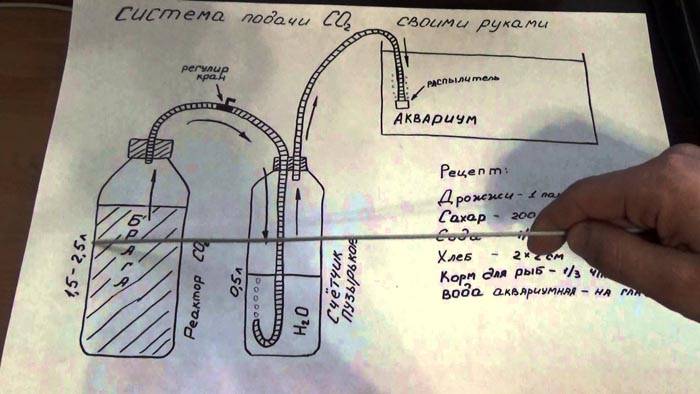 СИСТЕМА ПОДАЧИ CO2 СВОИМИ РУКАМИ
РЕГУЛИР
КРАН
РАСПЫЛИТЕЛЬ
АКВАРИУМ
1,5 - 2,5 Л
БРАГА
Реактор CO2
0,5 Л
H2O
Счётчик
пузырьков
Рецепт:
Дрожжи - 1
Сахар - 200
Сода
Хлеб - 2×2 см
Корм для рыб - 1/3
Вода аквариумная - на